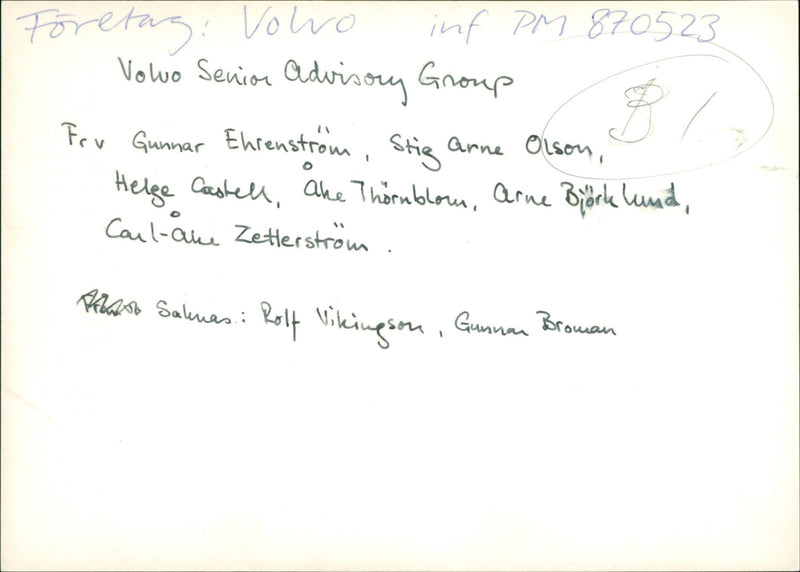 Företag: Volvo inf PM 870523
Volvo Senior Advisory Group
B 1
Fr v Gunnar Ehrenström, Stig Arne Olson,
Helge Castell, Åke Thörnblom, Arne Björklund,
Carl-Åke Zetterström.
Saknas: Rolf Vikingson, Gunnar Broman